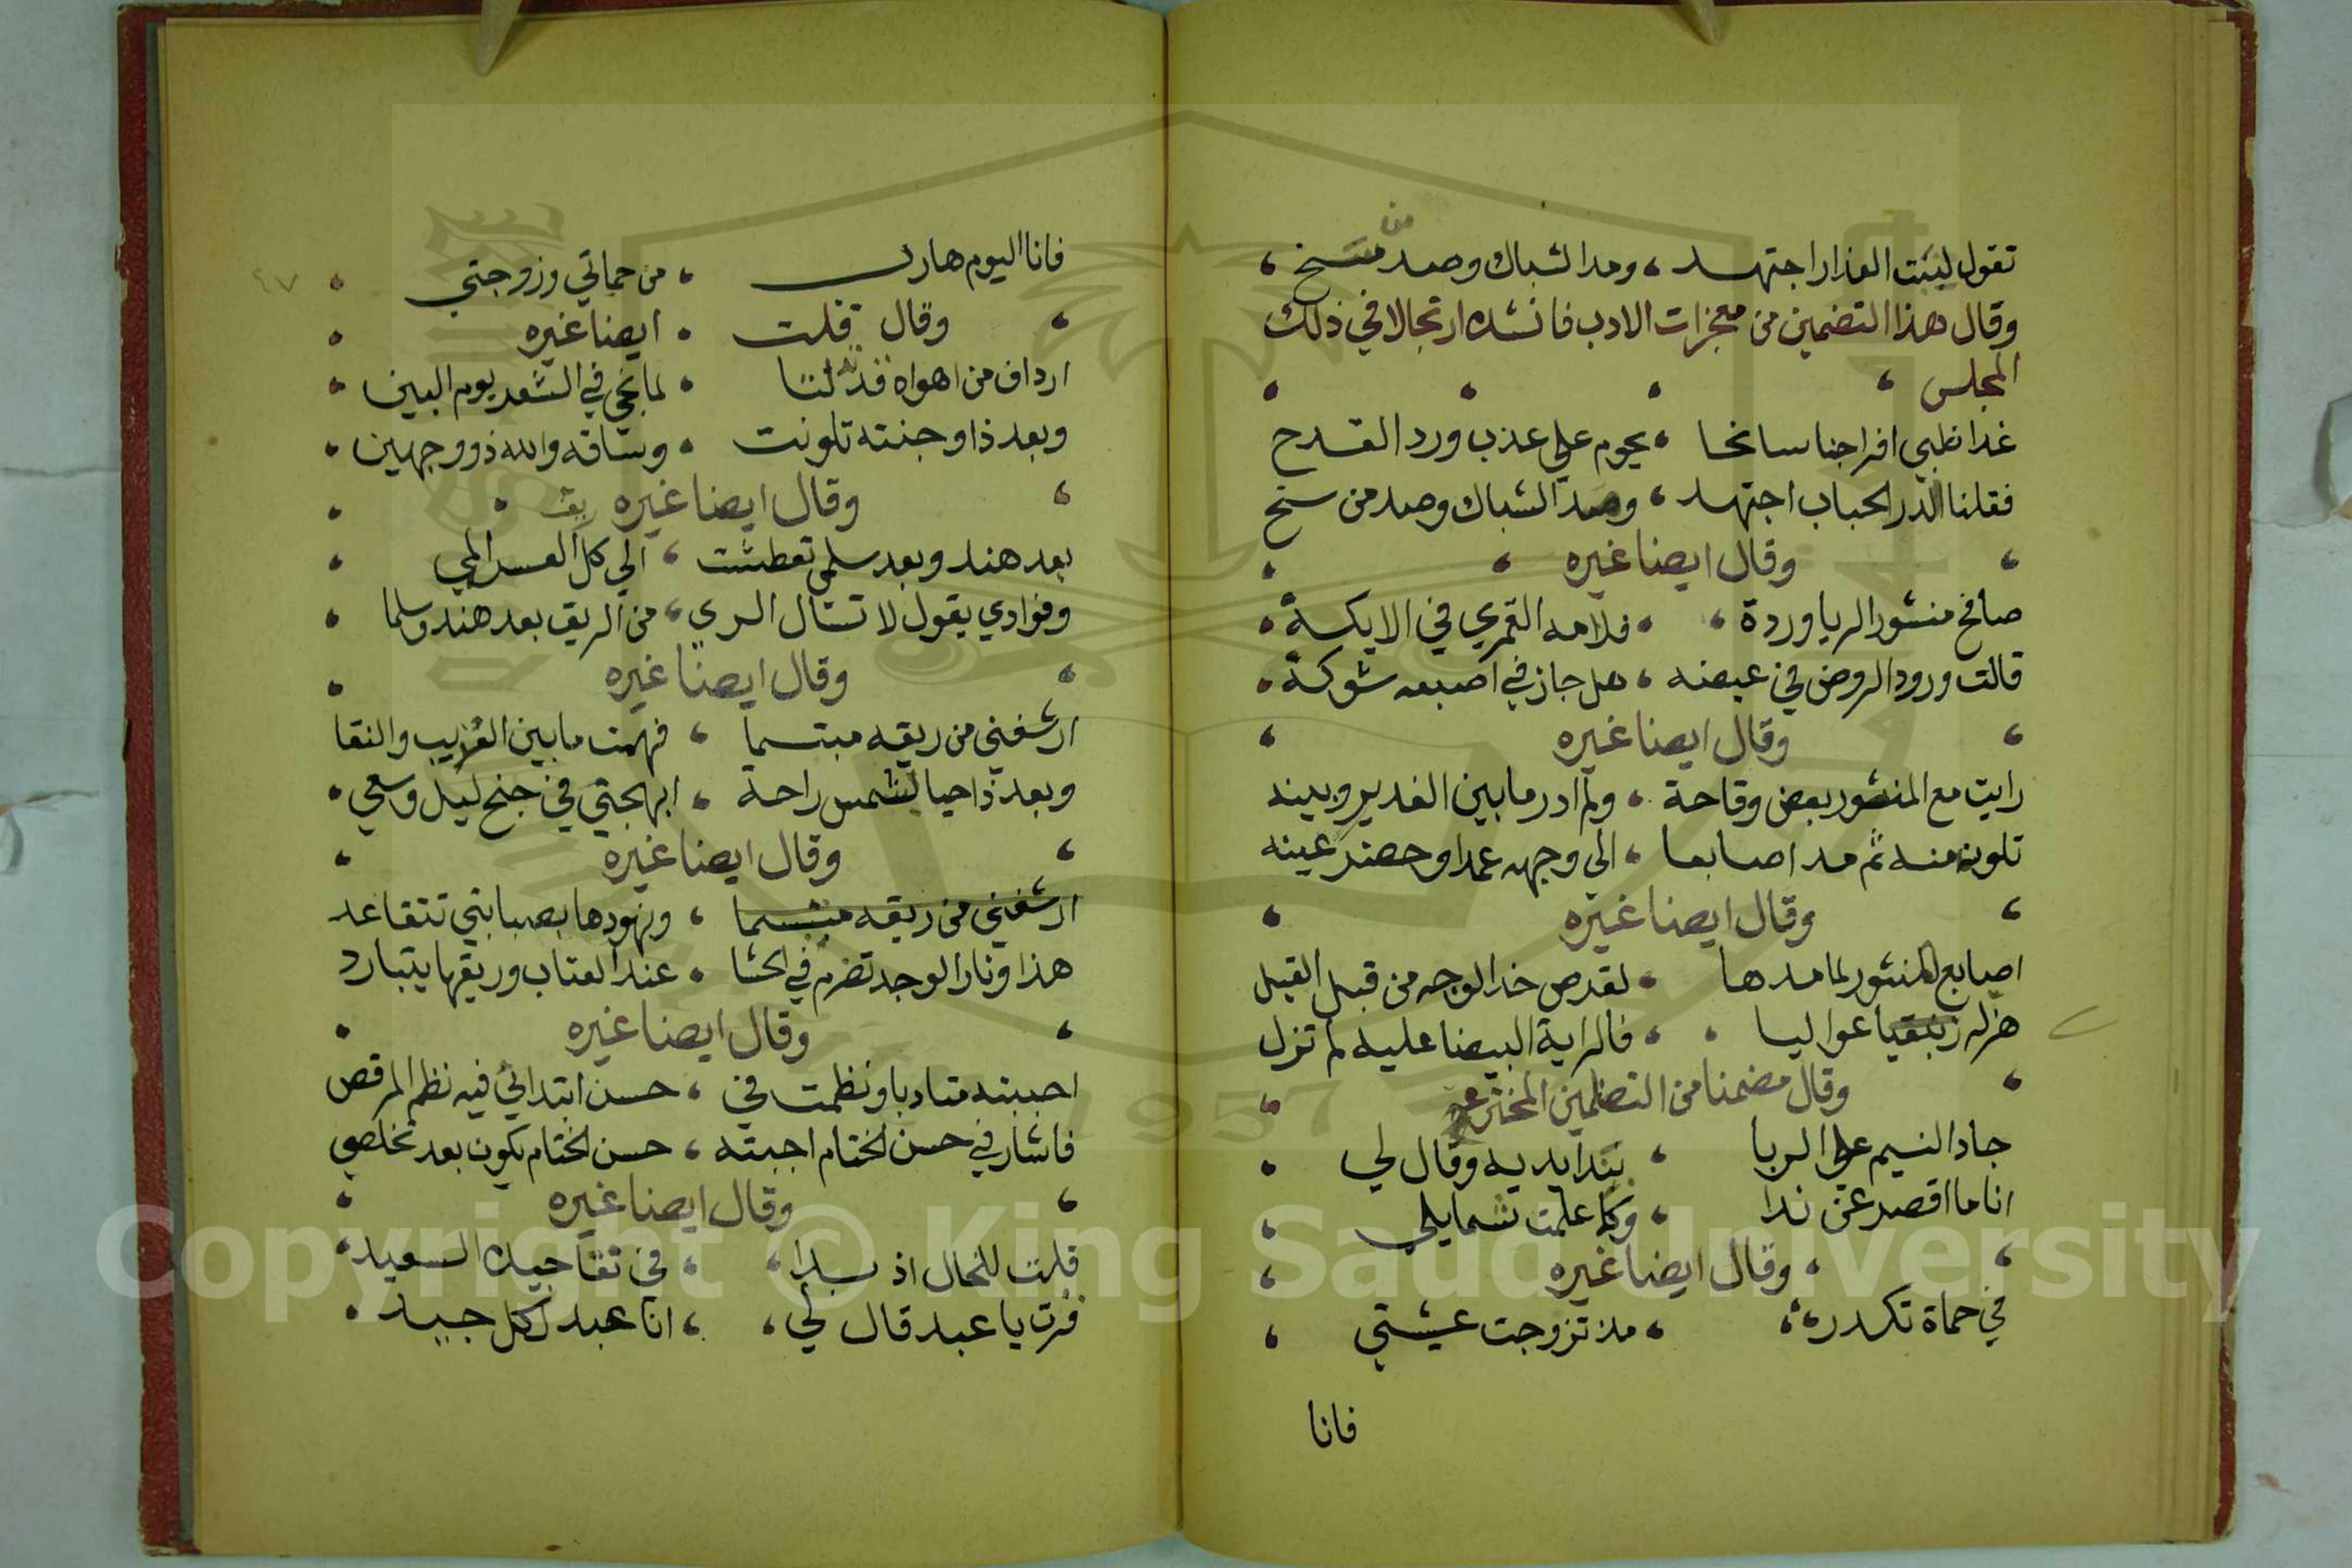 تقول لبنت العذار اجتهد ، ومد الشباك وصد من سنح ،
وقال هذا التضمين من معجزات الادب فانشده ارتجالا في ذلك
المجلس
غدا ظبي افراحنا سانحا ، يحوم على عذب ورد القدح
فقلنا لدر الحباب اجتهد ، ومد الشباك وصد من سنح
وقال ايضا غيره
صافح منشور الربا وردة ، فلامه القمري في الايكة
قالت ورود الروض في غيضه ، هل جاز في اصبعه شوكة
وقال ايضا غيره
رايت مع المنثور بعض وقاحة ، ولم ادر ما بين الغدير وبينه
تلون منه ثم مد اصابعا ، الى وجهه عمدا وعينه
وقال ايضا غيره
اصابع المنثور لما مدها ، لقرص خد الوجه من قبل القبل
عواليا ، فالراية البيضا عليه لم تزل
وقال مضمنا من التضمين المخترع
جاد النسيم على الربا ، بندا يديه وقال لي
انا ما اقصر عن ندا ، وكما علمت شمايلي
وقال ايضا غيره
في حماة تكدرت ، مذ تزوجت عيشتي
فانا
٤٧
فانا اليوم هارب ، من حماتي وزوجتي
وقال قلت ايضا غيره
ارداف من اهواه قد لنا ، لما نجي في الشعد يوم البين
وبعد ذا وجنته تلونت ، وساقه والله ذو وجهين
وقال ايضا غيره
بعد هند وبعد سلمى تعطشت ، الى كل العسد المي
وفوادي يقول لا تسال الري ، من الريق بعد هند وسلما
وقال ايضا غيره
ارشفني من ريقه مبتسما ، فهمت ما بين العذيب والنقا
وبعد ذا حيا لشمس راحة ، ابهجتي في جنح ليل
وقال ايضا غيره
ارشفني من ريقه مبتسما ، ونهودها بصبابتي تتقاعد
هذا ونار الوجد تضرم في الحشا ، عند العتاب وريقها يتبارد
وقال ايضا غيره
احببته متادبا ونظمت في ، حسن ابتدائي فيه نظم المرقص
فاشار في حسن الختام اجبته ، حسن الختام يكون بعد تخلصي
وقال ايضا غيره
قلت للخال اذ بدا ، في جيده السعيد
فزت يا عبد قال لي ، انا عبد لكل جيد
Copyright © King Saud University
1957